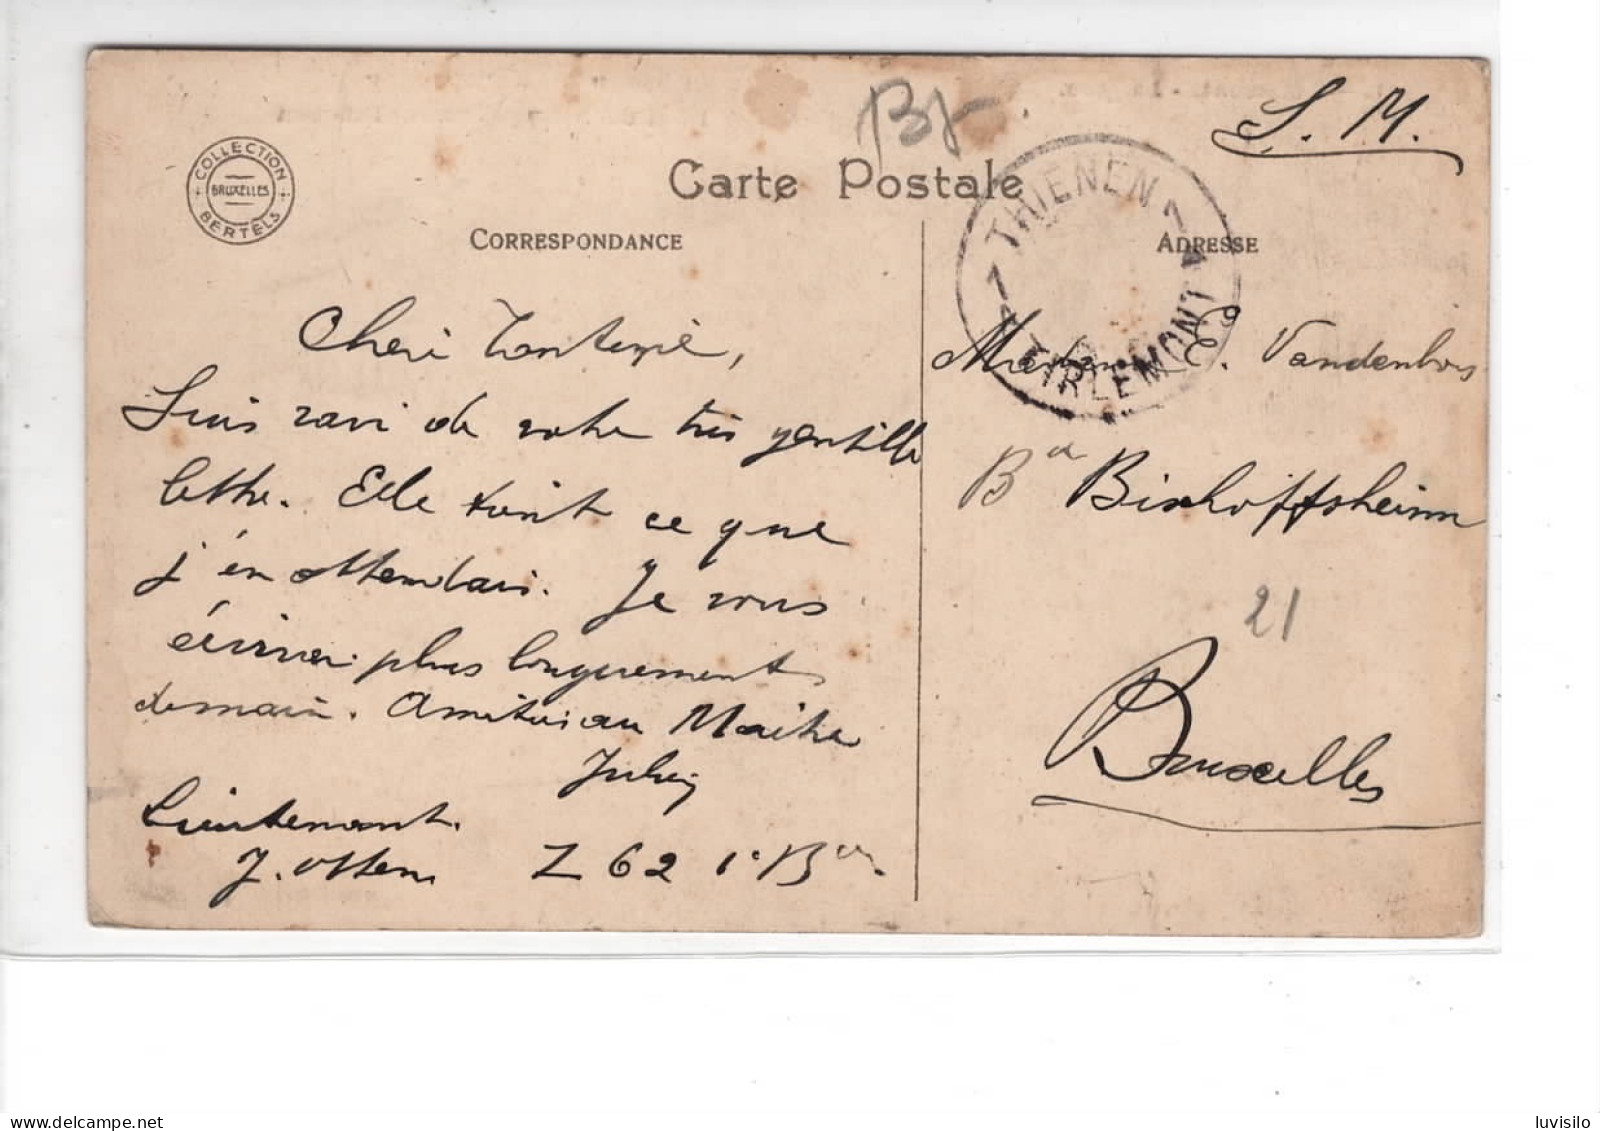 S. M.
COLLECTION
BRUXELLES
BERTELS
Carte Postale
CORRESPONDANCE
ADRESSE
THIENEN 1
1 TIRLEMONT
Suis ravi de votre très gentille
lettre. Elle était ce que
j'en attendais. Je vous
écrirai plus longuement
demain. Amitiés au Maître
Lieutenant
J. Otten Z 62 1e Bon
E. Vandenbois
Bd Bischoffsheim
21
Bruxelles
luvisilo